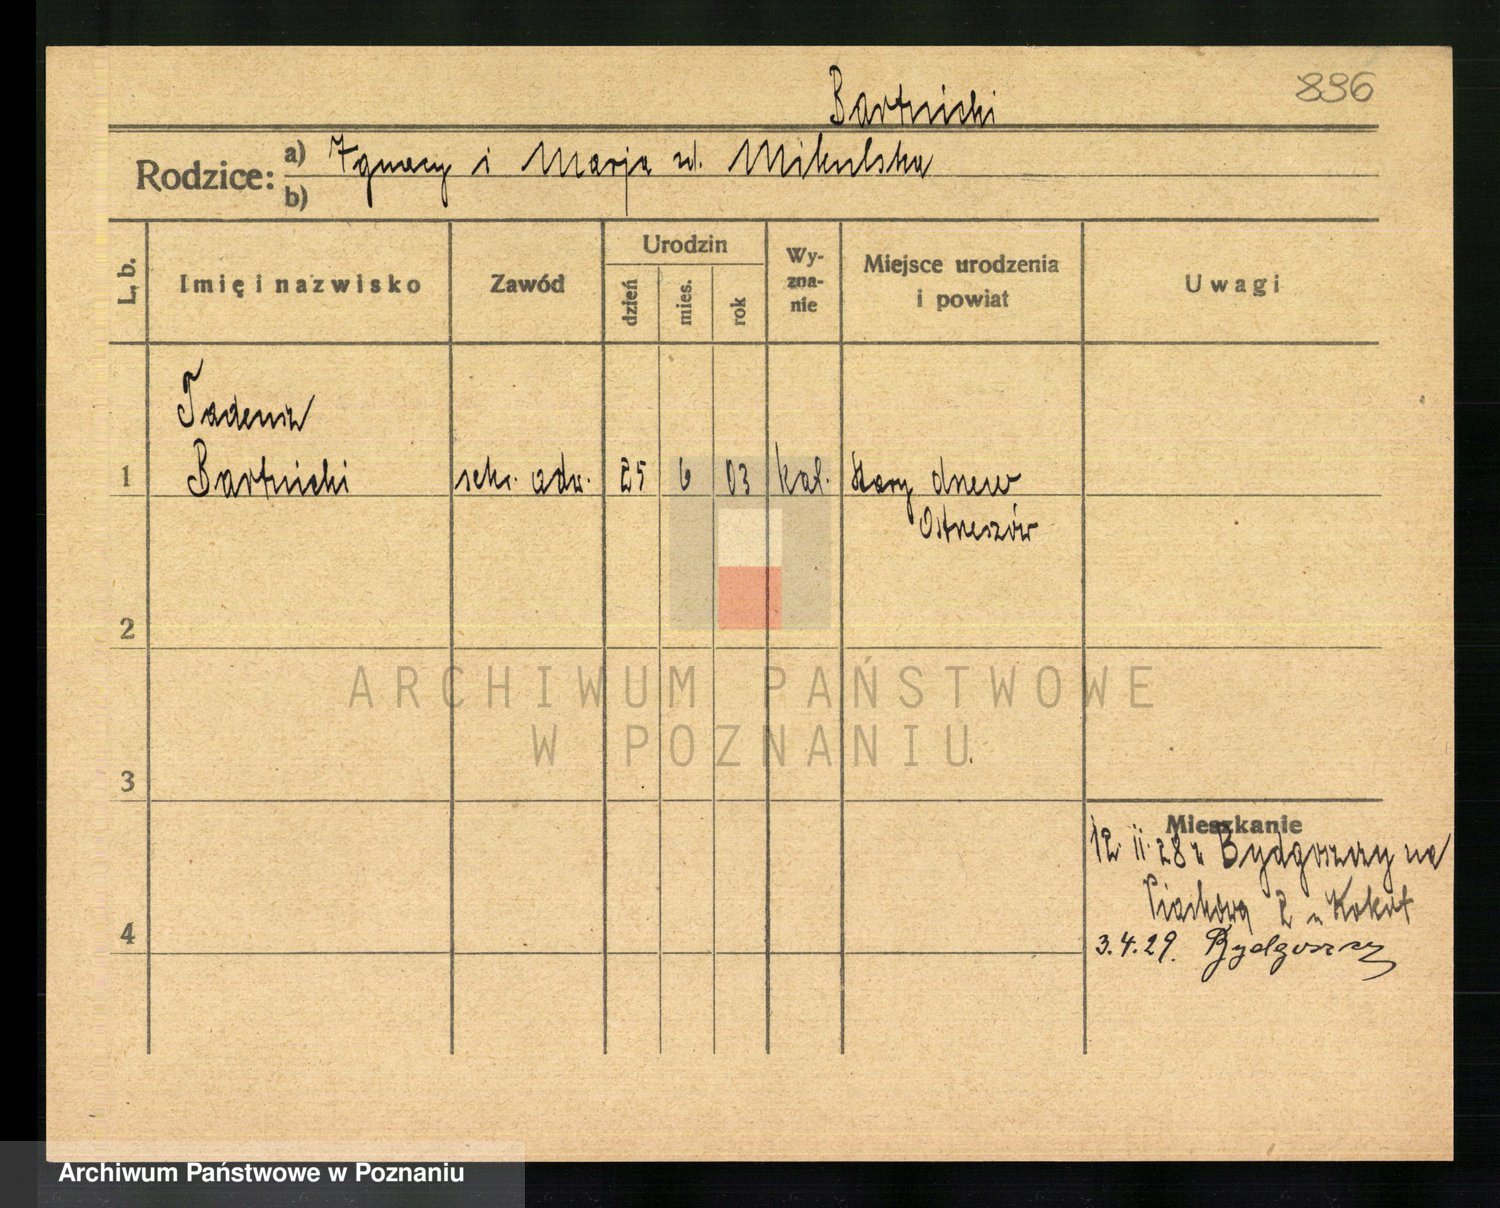 896
Bartnicki
Rodzice: a) Ignacy i Marja zd. Mikulska
b)
L. b.
Imię i nazwisko
Zawód
Urodzin
dzień
mies.
rok
Wy-
zna-
nie
Miejsce urodzenia
i powiat
Uwagi
Tadeusz
1 Bartnicki sekr. adw. 25 6 03 kat. Stary dwew
Ostrzeszów
2
3
4
Mieszkanie
12. ii. 28 z Bydgoszczy na
2 u
3.4.29. Bydgoszczy
ARCHIWUM PAŃSTWOWE
W POZNANIU
Archiwum Państwowe w Poznaniu